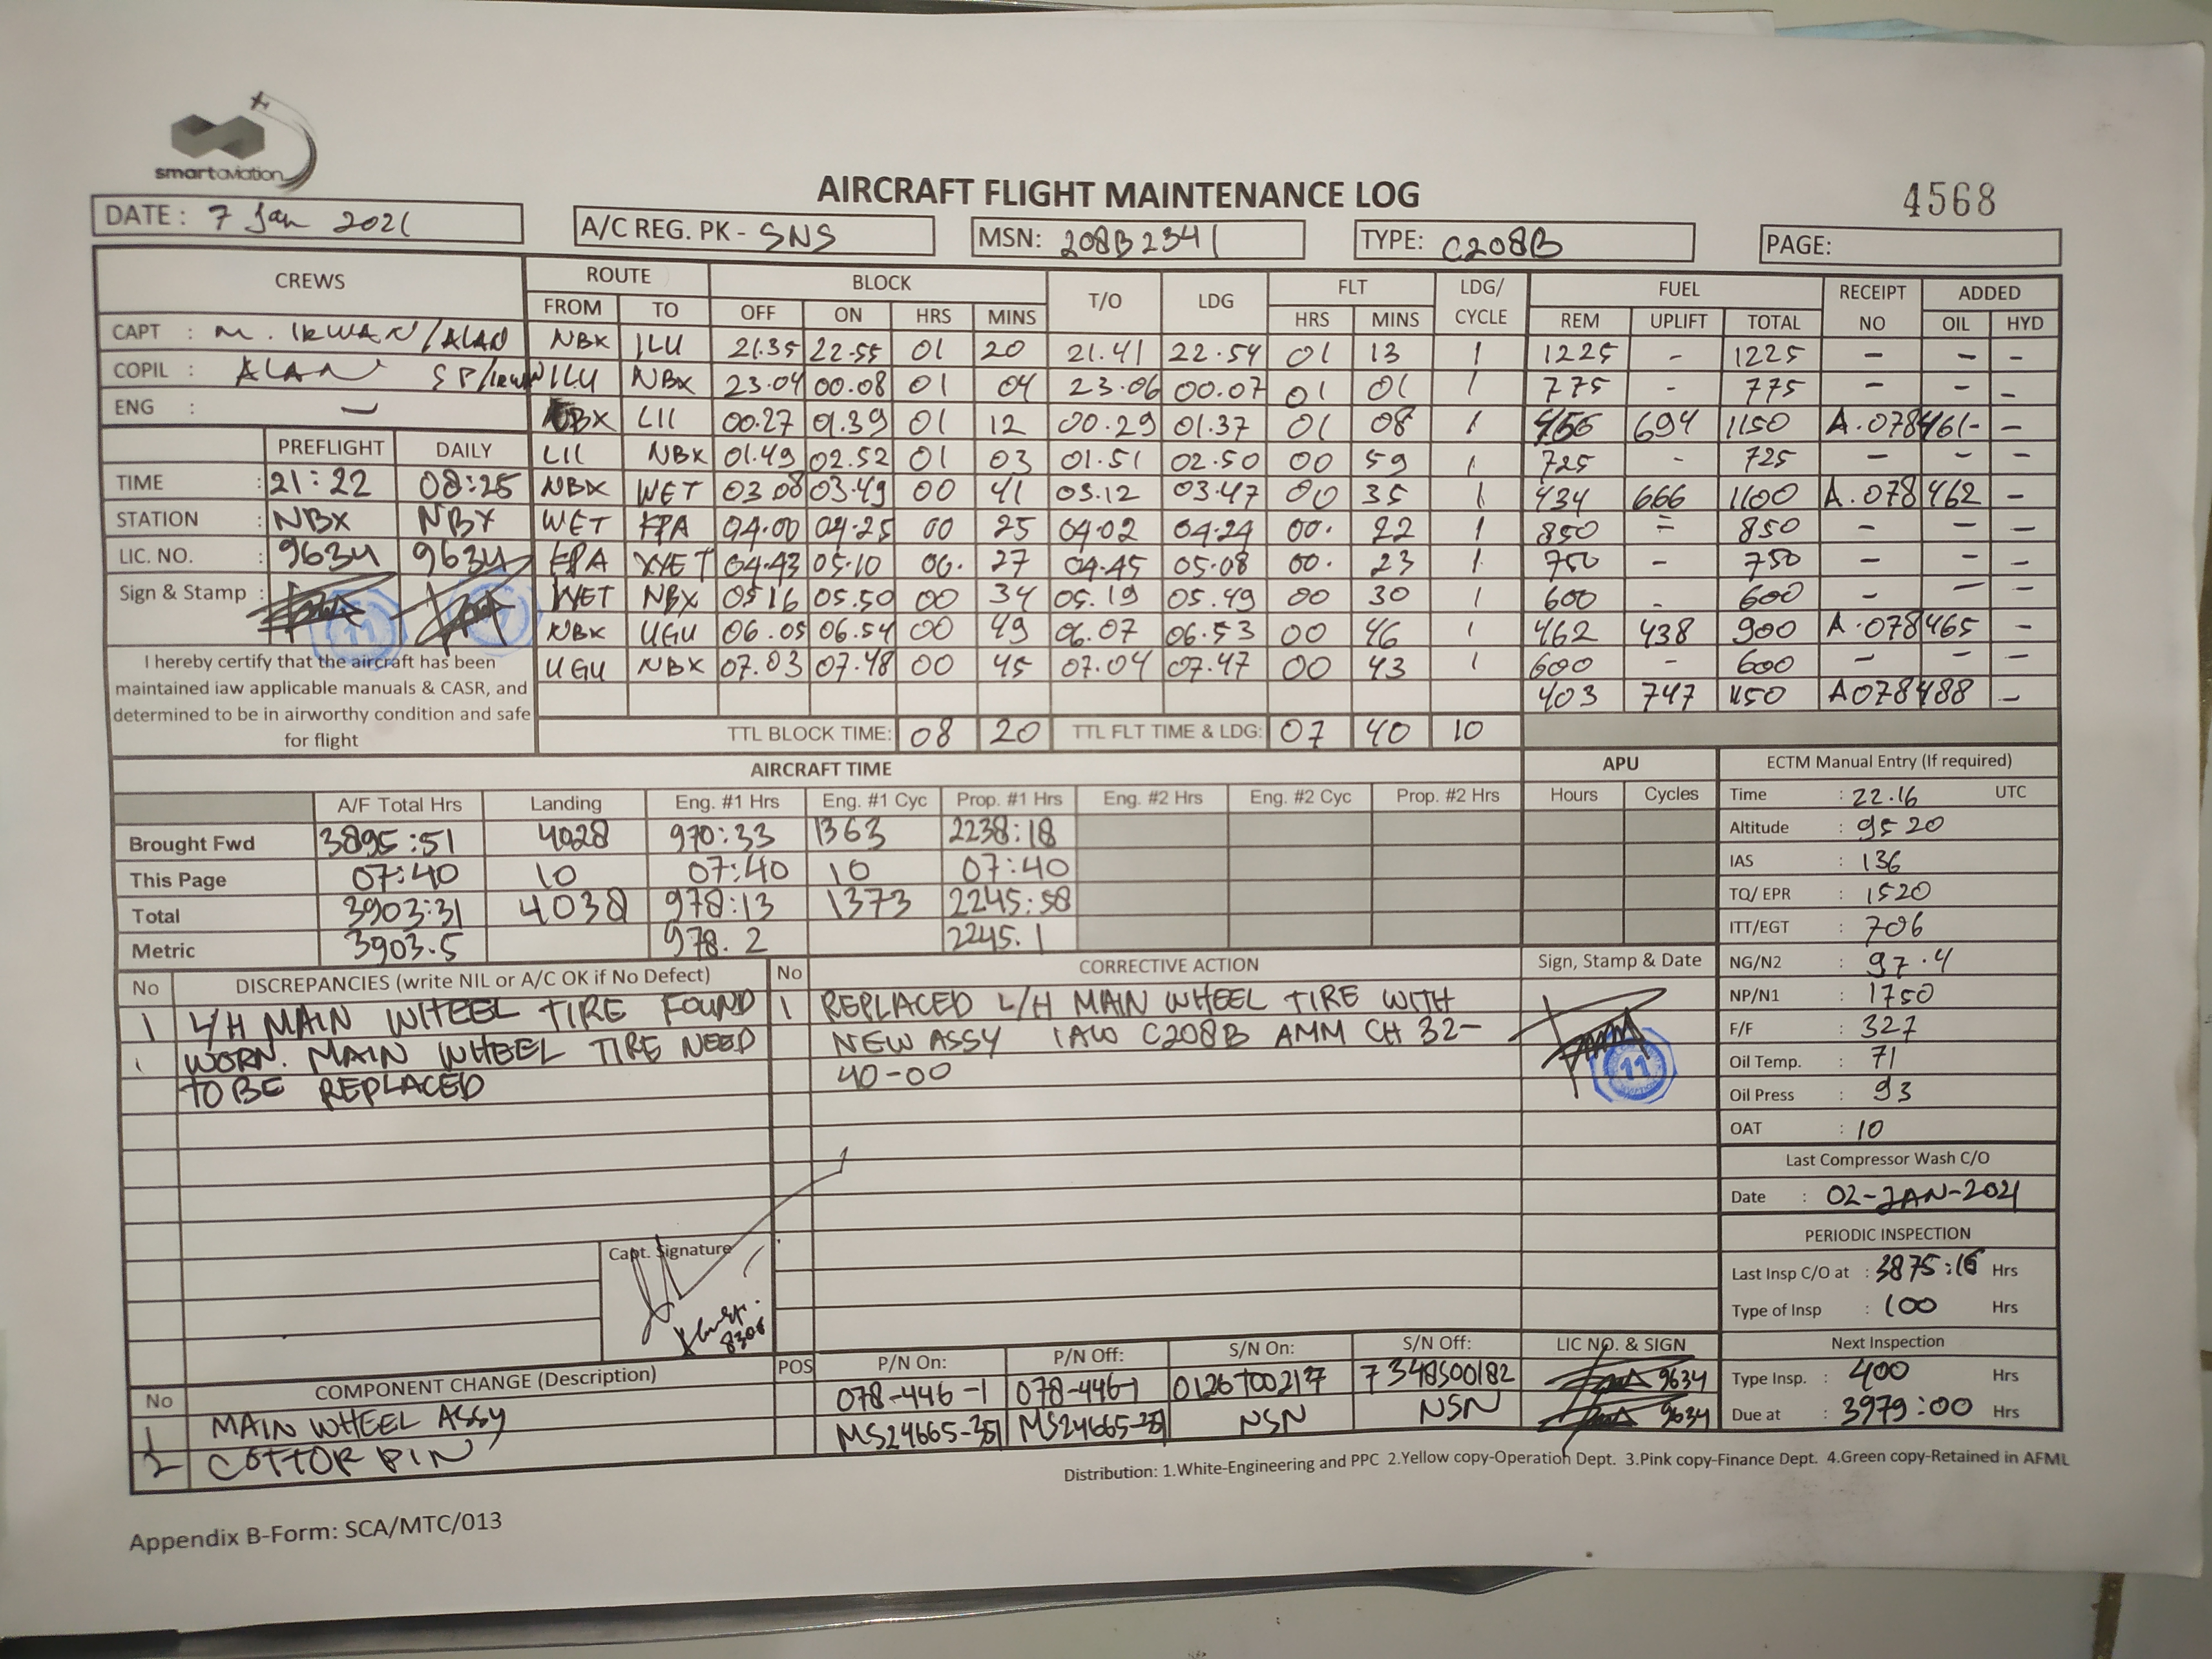 smartaviation
AIRCRAFT FLIGHT MAINTENANCE LOG
4568
DATE: 7 Jan 2021
A/C REG. PK - SNS
MSN: 208B2341
TYPE: C208B
PAGE:
CREWS ROUTE BLOCK T/O LDG FLT LDG/CYCLE FUEL RECEIPT NO ADDED
FROM TO OFF ON HRS MINS HRS MINS REM UPLIFT TOTAL OIL HYD
CAPT : M. IRWAN/ALAN
COPIL : ALAN SP/IRWN
ENG : -
NBX ILU 21.35 22.55 01 20 21.41 22.54 01 13 1 1225 - 1225 - - -
ILU NBX 23.04 00.08 01 04 23.06 00.07 01 01 1 775 - 775 - - -
NBX LII 00.27 01.39 01 12 00.29 01.37 01 08 1 456 694 1150 A.078461 - -
LII NBX 01.49 02.52 01 03 01.51 02.50 00 59 1 725 - 725 - - -
NBX WET 03.08 03.49 00 41 03.12 03.47 00 35 1 434 666 1100 A.078462 -
WET FPA 04.00 04.25 00 25 04.02 04.24 00. 22 1 850 = 850 - - -
FPA WET 04.43 05.10 00. 27 04.45 05.08 00. 23 1 750 - 750 - - -
WET NBX 0516 05.50 00 34 05.19 05.49 00 30 1 600 - 600 - - -
NBX UGU 06.05 06.54 00 49 06.07 06.53 00 46 1 462 438 900 A.078465 -
UGU NBX 07.03 07.48 00 45 07.04 07.47 00 43 1 600 - 600 - - -
403 747 1150 A078488 -
TTL BLOCK TIME: 08 20 TTL FLT TIME & LDG: 07 40 10
PREFLIGHT DAILY
TIME : 21:22 08:25
STATION : NBX NBX
LIC. NO. : 9634 9634
Sign & Stamp :
11
I hereby certify that the aircraft has been
maintained iaw applicable manuals & CASR, and
determined to be in airworthy condition and safe
for flight
AIRCRAFT TIME APU
A/F Total Hrs Landing Eng. #1 Hrs Eng. #1 Cyc Prop. #1 Hrs Eng. #2 Hrs Eng. #2 Cyc Prop. #2 Hrs Hours Cycles
Brought Fwd 3895:51 4028 970:33 1363 2238:18
This Page 07:40 10 07:40 10 07:40
Total 3903:31 4038 978:13 1373 2245:58
Metric 3903.5 978.2 2245.1
ECTM Manual Entry (If required)
Time : 22.16 UTC
Altitude : 9520
IAS : 136
TQ/ EPR : 1520
ITT/EGT : 706
NG/N2 : 97.4
NP/N1 : 1750
F/F : 327
Oil Temp. : 71
Oil Press : 93
OAT : 10
Last Compressor Wash C/O
Date : 02-JAN-2021
PERIODIC INSPECTION
Last Insp C/O at : 3875:16 Hrs
Type of Insp : 100 Hrs
Next Inspection
Type Insp. : 400 Hrs
Due at : 3979:00 Hrs
No DISCREPANCIES (write NIL or A/C OK if No Defect)
1 L/H MAIN WHEEL TIRE FOUND
WORN. MAIN WHEEL TIRE NEED
TO BE REPLACED
Capt. Signature
8306
No CORRECTIVE ACTION Sign, Stamp & Date
1 REPLACED L/H MAIN WHEEL TIRE WITH
NEW ASSY IAW C208B AMM CH 32-
40-00
11
No COMPONENT CHANGE (Description) POS P/N On: P/N Off: S/N On: S/N Off: LIC NO. & SIGN
1 MAIN WHEEL ASSY 078-446-1 078-446-1 0126T00217 7348S00182 9634
2 COTTOR PIN MS24665-351 MS24665-351 NSN NSN 9634
Distribution: 1.White-Engineering and PPC 2.Yellow copy-Operation Dept. 3.Pink copy-Finance Dept. 4.Green copy-Retained in AFML
Appendix B-Form: SCA/MTC/013